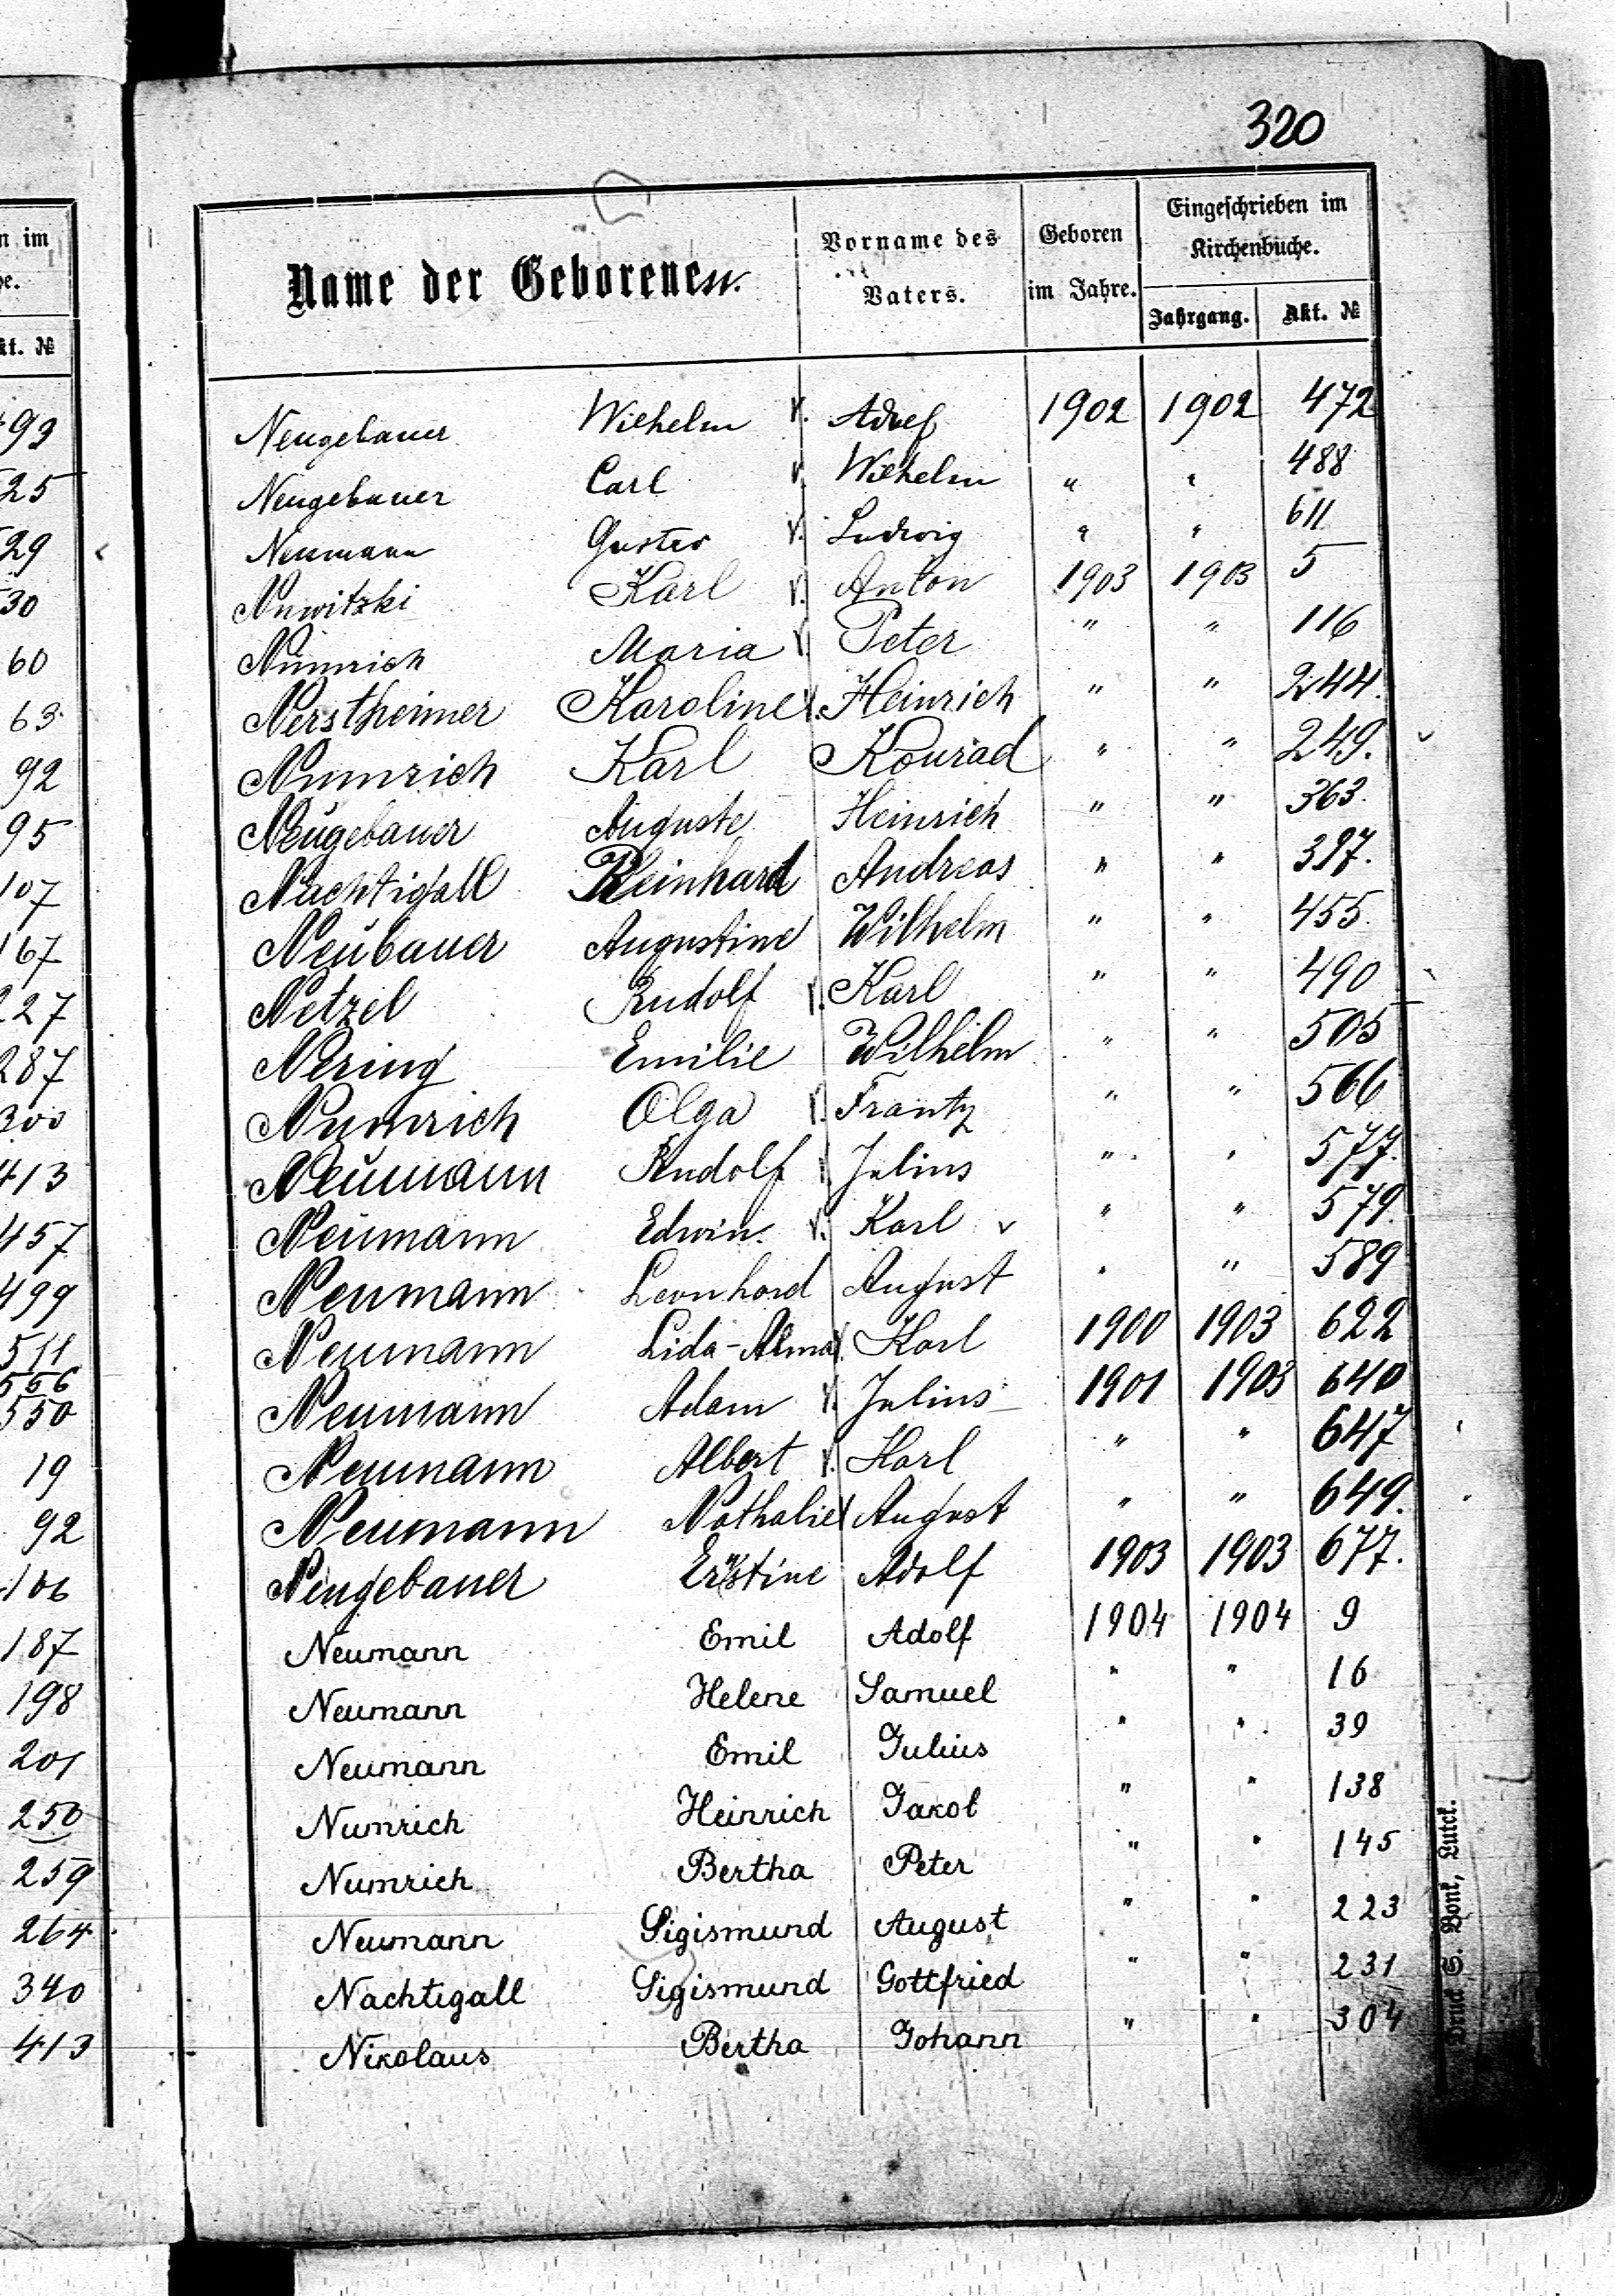 320
n im
e.
kt. №
93
25
29
30
60
63
92
95
107
167
227
287
300
413
457
499
511
556
550
19
92
106
187
198
201
250
259
264
340
413
Name der Geborenen. Vorname des Vaters. Geboren im Jahre. Eingeschrieben im Kirchenbuche. Jahrgang. Akt. №
Neugebauer Wilhelm v. Adolf 1902 1902 472
Neugebauer Carl v. Wilhelm " " 488
Neumann Gustav v. Ludwig " " 611
Nuwitzki Karl v. Anton 1903 1903 5
Numrich Maria v. Peter " " 116
Nerstheimer Karoline v. Heinrich " " 244.
Numrich Karl Konrad " " 249.
Neugebauer Auguste Heinrich " " 363.
Nachtigall Reinhard Andreas " " 397.
Neubauer Augustine Wilhelm " " 455.
Netzel Rudolf v. Karl " " 490
Nering Emilie Wilhelm " " 505
Numrich Olga v. Frantz " " 566
Neumann Rudolf v. Julius " " 577.
Neumann Edwin. v. Karl v " " 579.
Neumann Leonhard August " " 589
Neumann Lida-Alma v. Karl 1900 1903 622
Neumann Adam v. Julius 1901 1903 640
Neumann Albert v. Karl " " 647
Neumann Nathalie v August " " 649.
Neugebauer Ernstine Adolf 1903 1903 677.
Neumann Emil Adolf 1904 1904 9
Neumann Helene Samuel " " 16
Neumann Emil Julius " " 39
Numrich Heinrich Jakob " " 138
Numrich Bertha Peter " " 145
Neumann Sigismund August " " 223
Nachtigall Sigismund Gottfried " " 231
Nikolaus Bertha Johann " " 304
Druck S. Bonk, Lutck.